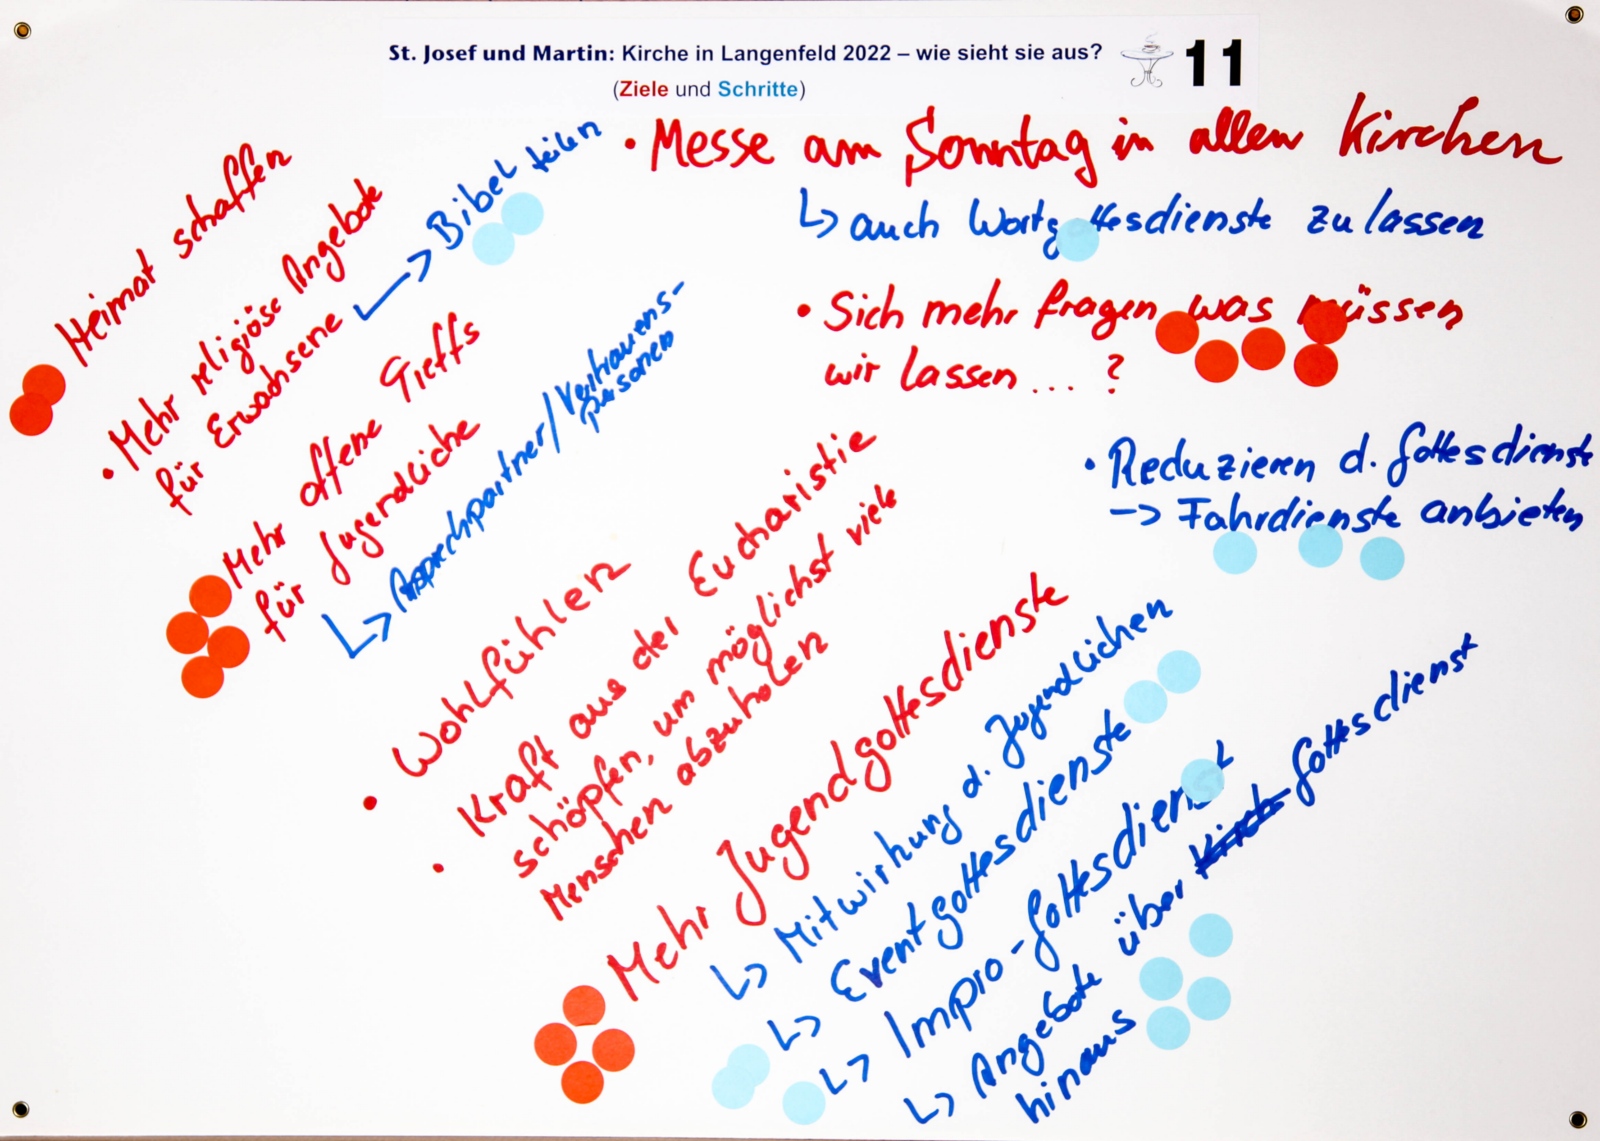 St. Josef und Martin: Kirche in Langenfeld 2022 – wie sieht sie aus?
(Ziele und Schritte)
11
• Messe am Sonntag in allen Kirchen
↳ auch Wortgottesdienste zu lassen
• Sich mehr fragen was müssen
wir lassen ... ?
• Reduzieren d. Gottesdienste
-> Fahrdienste anbieten
Heimat schaffen
• Mehr religiöse Angebote
für Erwachsene
↳ Bibel teilen
Mehr offene Treffs
für Jugendliche
↳ Ansprechpartner/Vertrauens-
personen
• Wohlfühlen
• Kraft aus der Eucharistie
schöpfen, um möglichst viele
Menschen abzuholen
Mehr Jugendgottesdienste
↳ Mitwirkung d. Jugendlichen
↳ Eventgottesdienste
↳ Impro-Gottesdienst
↳ Angebote über Gottesdienst
hinaus